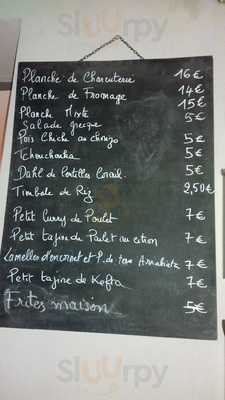 Sluurpy
Planche de Charcuterie 16€
Planche de Fromage 14€
Planche Mixte 15€
Salade grecque 5€
Pois Chiche au chorizo 5€
Tchouchouka 5€
Dahl de lentilles Corail 5€
Timbale de Riz 2,50€
Petit Curry de Poulet 7€
Petit tajine de Poulet au citron 7€
Lamelles d'encornet et P. de terre Arrabiata 7€
Petit tajine de Kefta 7€
Frites maison 5€
Sluurpy